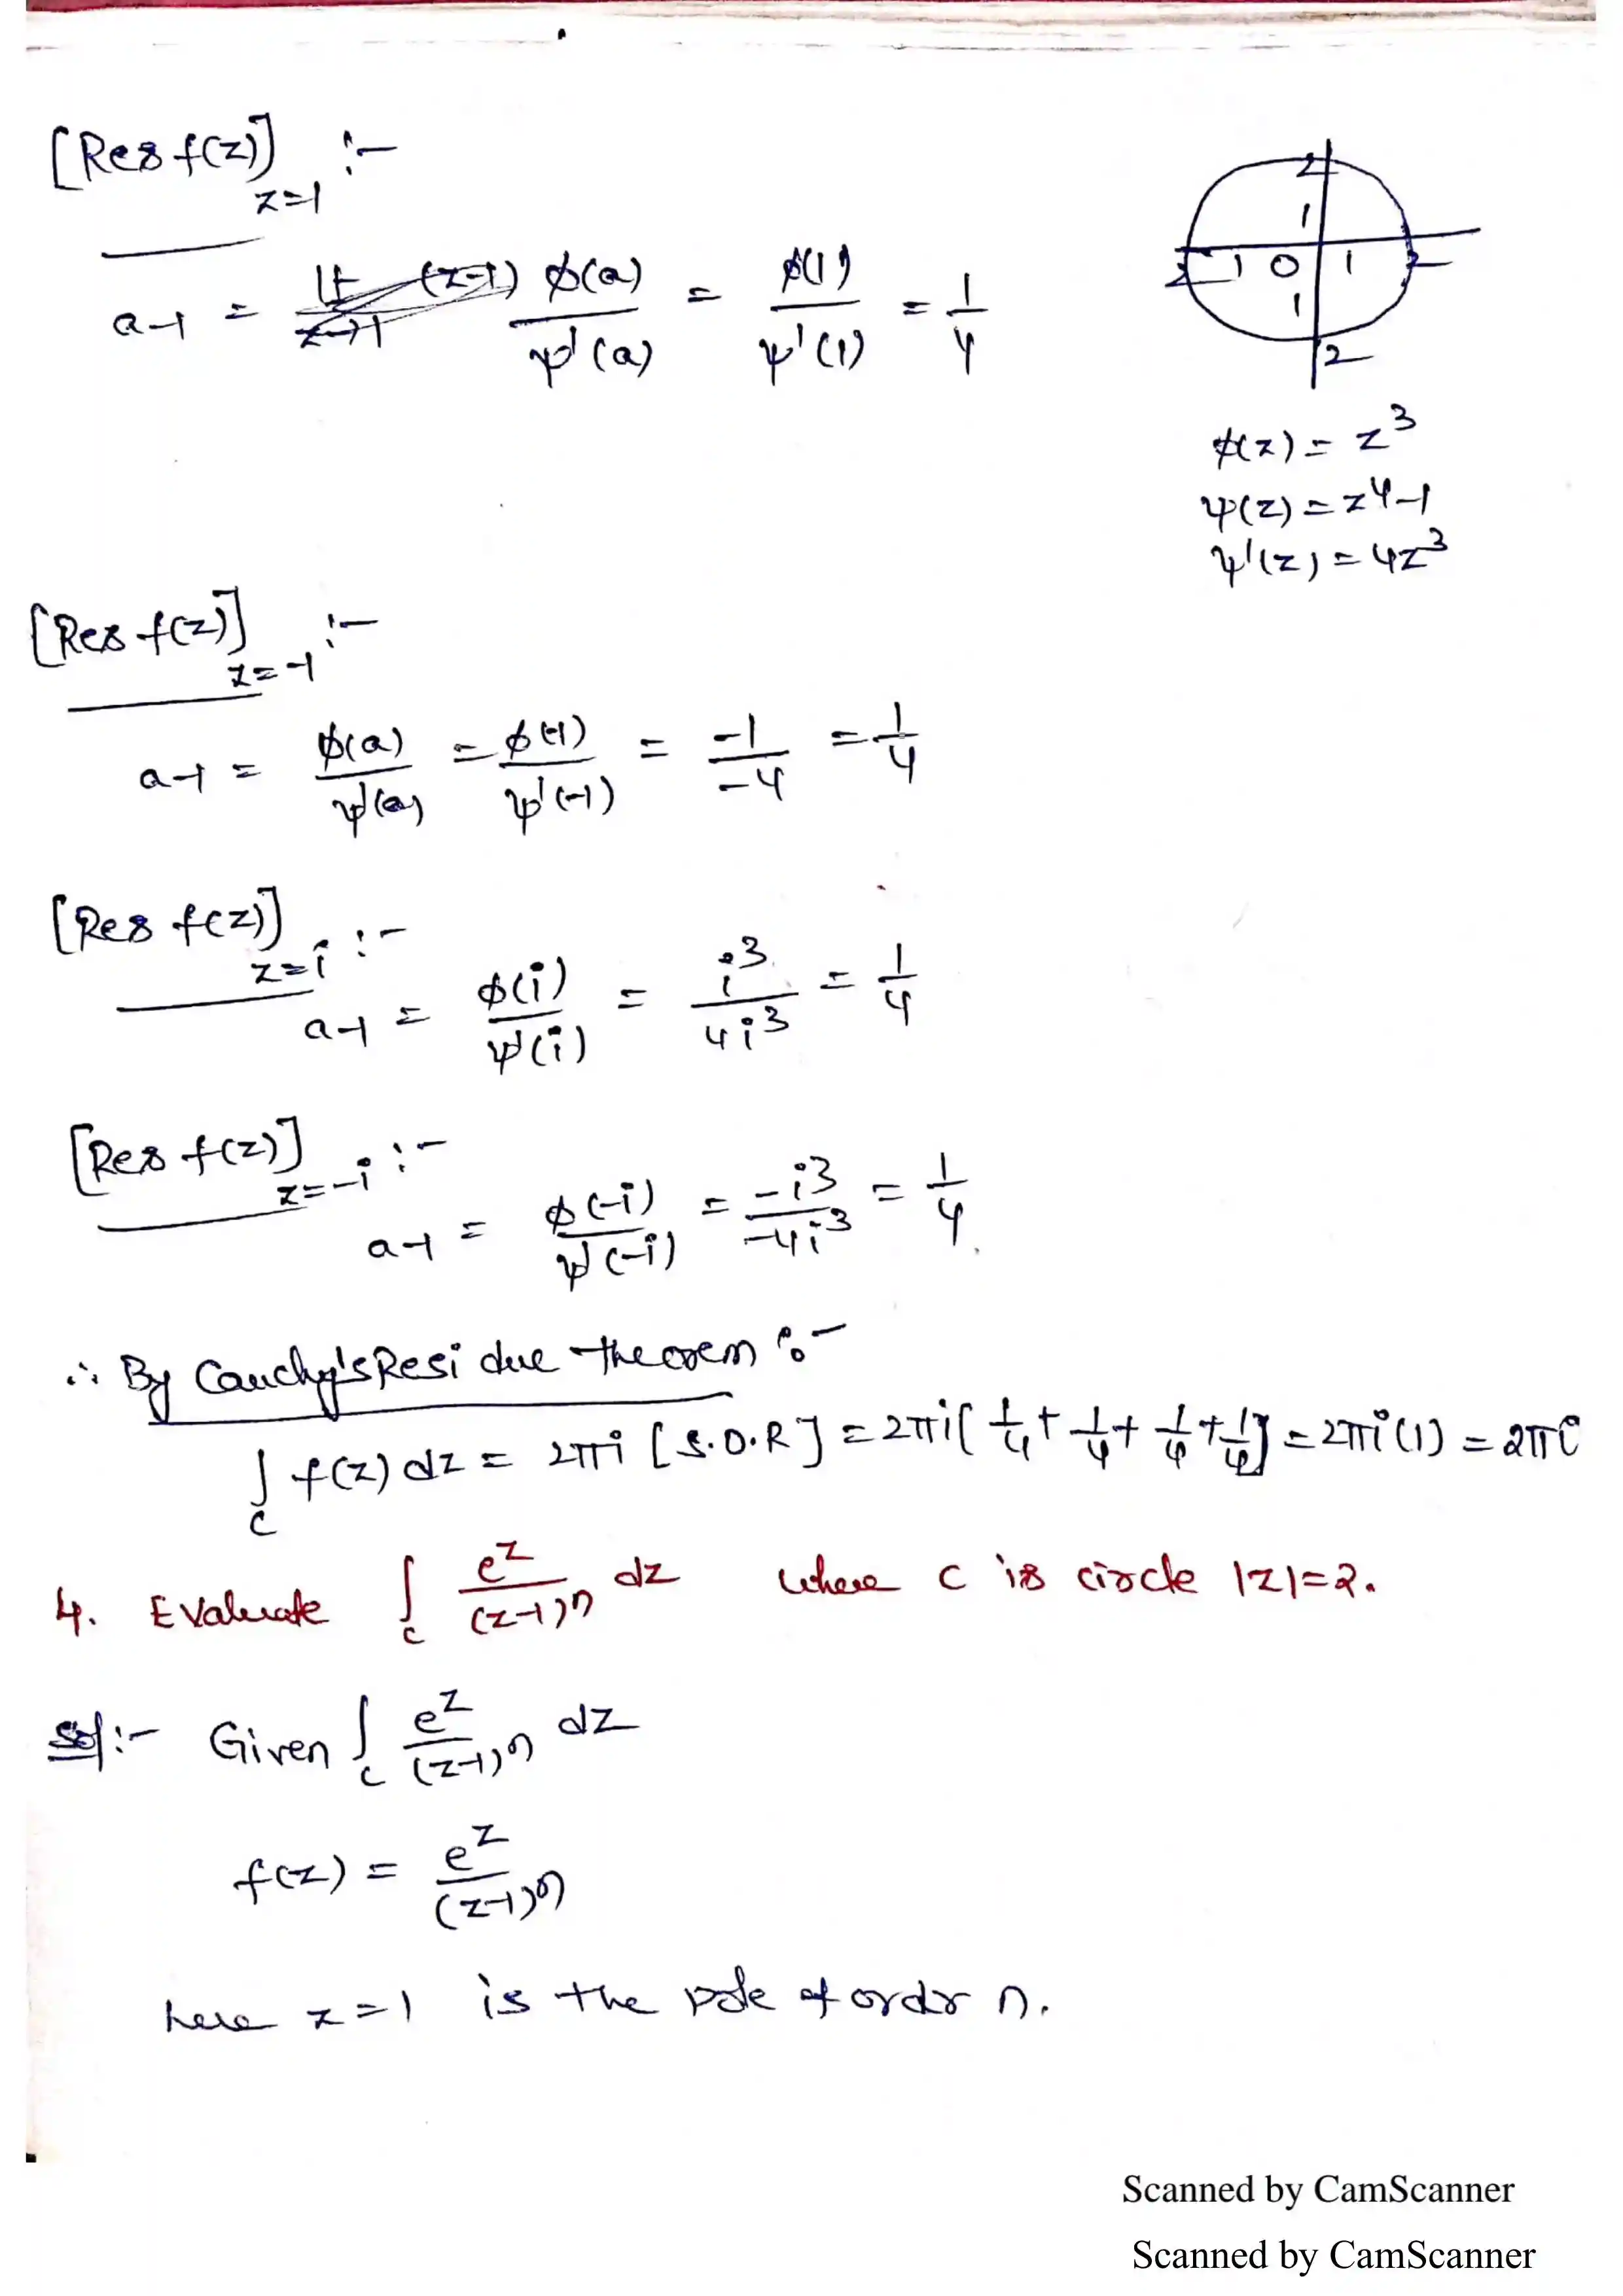 [Res f(z)] z=1 :-
a-1 = lt z→1 (z-1) φ(a)/ψ'(a) = φ(1)/ψ'(1) = 1/4
2
1
2 1 0 1 2
1
2
φ(z) = z^3
ψ(z) = z^4-1
ψ'(z) = 4z^3
[Res f(z)] z=-1 :-
a-1 = φ(a)/ψ'(a) = φ(-1)/ψ'(-1) = -1/-4 = 1/4
[Res f(z)] z=i :-
a-1 = φ(i)/ψ'(i) = i^3/4i^3 = 1/4
[Res f(z)] z=-i :-
a-1 = φ(-i)/ψ'(-i) = -i^3/-4i^3 = 1/4.
∴ By Cauchy's Residue theorem :-
∫c f(z) dz = 2πi [S.O.R] = 2πi[1/4 + 1/4 + 1/4 + 1/4] = 2πi(1) = 2πi
4. Evaluate ∫c e^z/(z-1)^n dz where c is circle |z|=2.
Sol:- Given ∫c e^z/(z-1)^n dz
f(z) = e^z/(z-1)^n
here z=1 is the pole of order n.
Scanned by CamScanner
Scanned by CamScanner